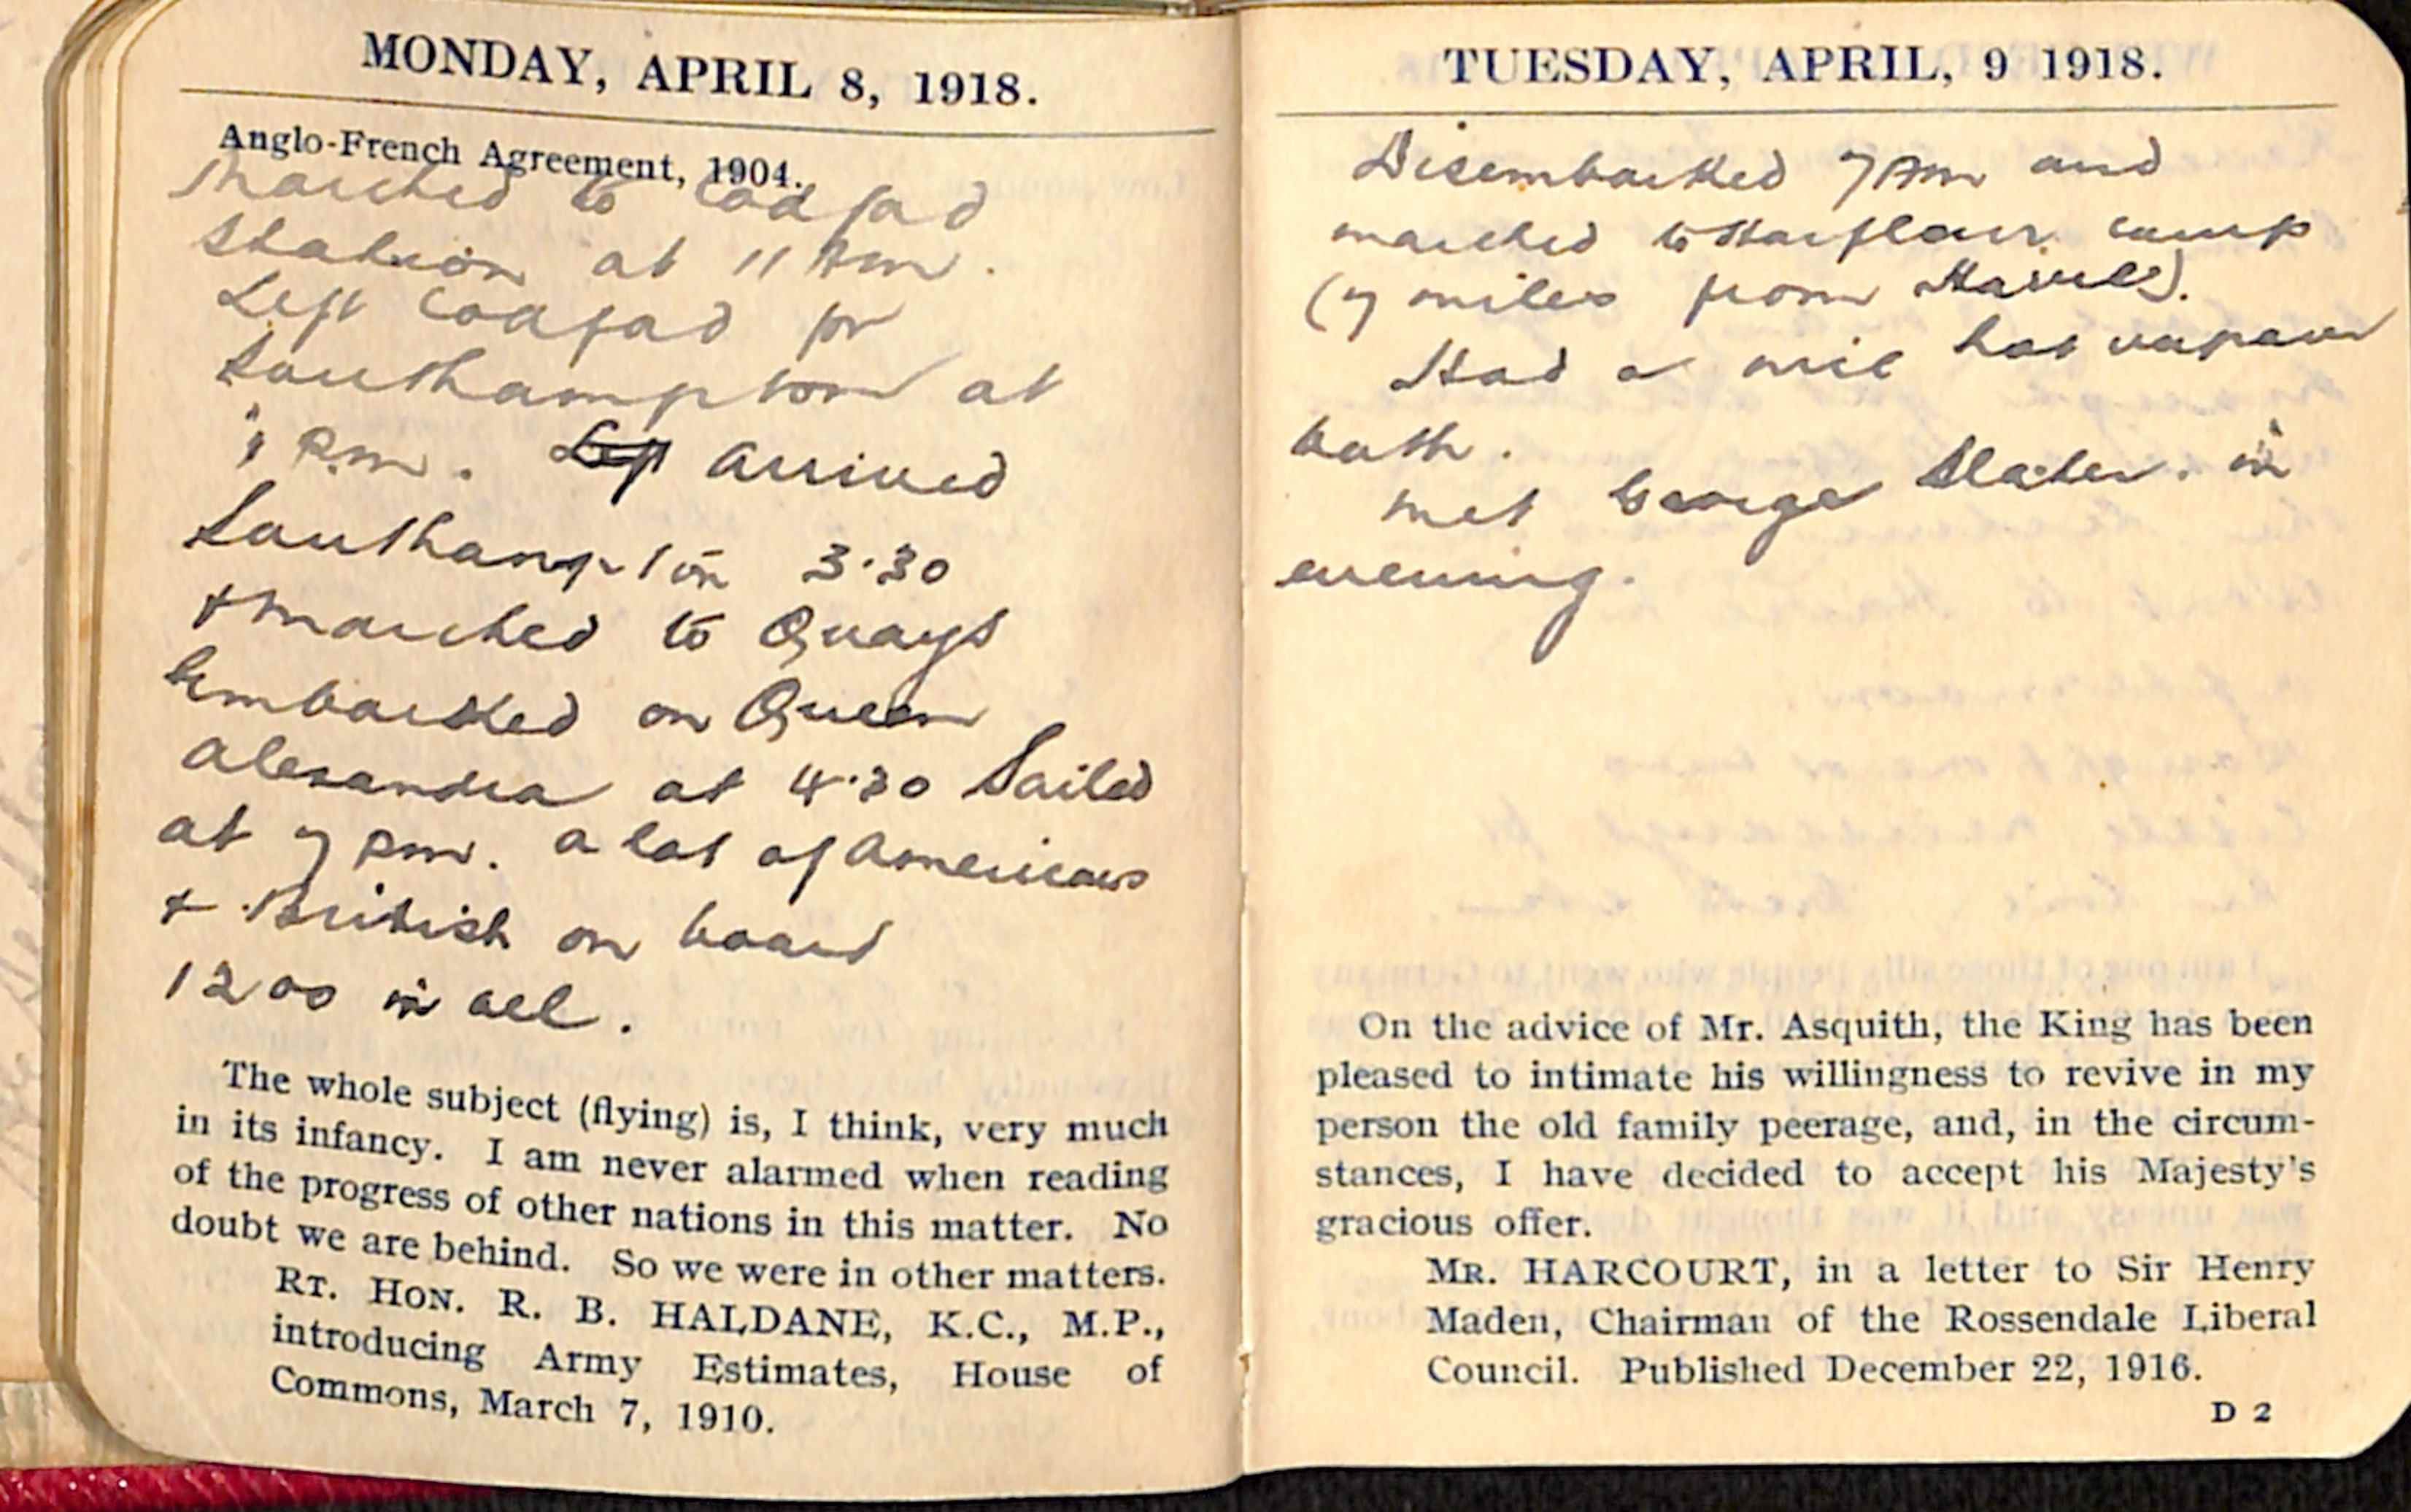 MONDAY, APRIL 8, 1918.
Anglo-French Agreement, 1904.
Marched to Codford
Station at 11 Am.
Left Codford for
Southampton at
1 P.m. Left Arrived
Southampton 3.30
+ marched to Quays
Embarked on Queen
Alexandra at 4.30 Sailed
at 7 pm. a lot of Americans
+ British on board
1200 in all.
The whole subject (flying) is, I think, very much
in its infancy. I am never alarmed when reading
of the progress of other nations in this matter. No
doubt we are behind. So we were in other matters.
RT. HON. R. B. HALDANE, K.C., M.P.,
introducing Army Estimates, House of
Commons, March 7, 1910.
TUESDAY, APRIL, 9 1918.
Disembarked 7 Am and
marched to Harfleur camp
(7 miles from Havre).
Had a nice hot vapour
bath.
met George Slater. in
evening.
On the advice of Mr. Asquith, the King has been
pleased to intimate his willingness to revive in my
person the old family peerage, and, in the circum-
stances, I have decided to accept his Majesty's
gracious offer.
MR. HARCOURT, in a letter to Sir Henry
Maden, Chairman of the Rossendale Liberal
Council. Published December 22, 1916.
D 2